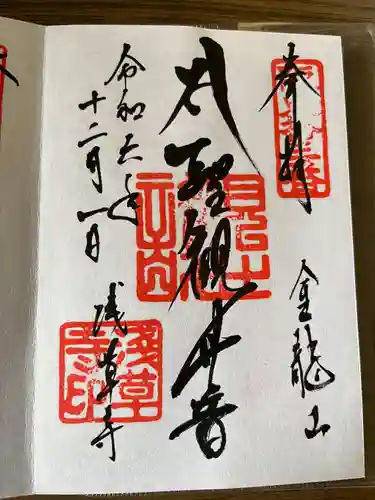 奉拝
金龍山
聖観世音
令和六年
十二月一日
浅草寺
浅草
寺印